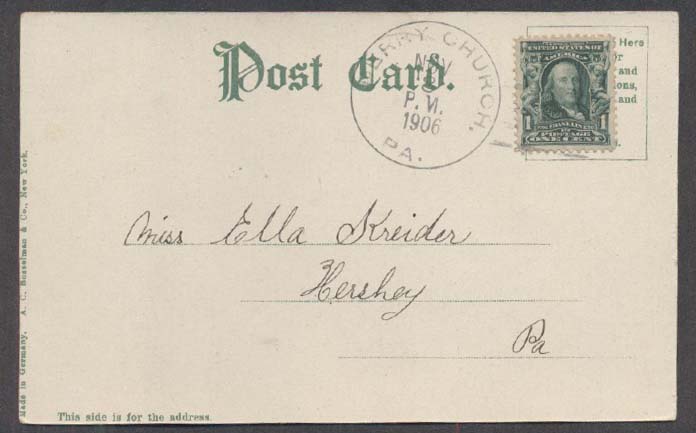 Post Card.
CHURCH.
NOV
P.M.
1906
PA.
Here
and
and
UNITED STATES OF
AMERICA
1 1
POSTAGE
ONE CENT
Miss Ella Kreider
Hershey
Pa
Made in Germany. A. C. Bosselman & Co., New York.
This side is for the address.